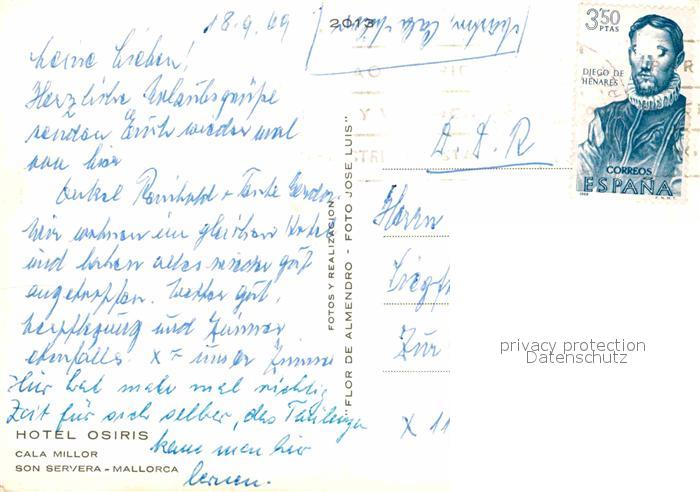 18.9.69
Meine Lieben!
Herzliche Urlaubsgrüße
senden Euch wieder mal
von hier
Onkel Reinhold + Tante
Wir wohnen im gleichen Hotel
und haben alles wieder gut
angetroffen. Wetter gut,
Verpflegung und Zimmer
ebenfalls. X = unser Zimmer
Hier hat man mal richtig
Zeit für sich selber, das
kann man hier
lernen.
HOTEL OSIRIS
CALA MILLOR
SON SERVERA - MALLORCA
2013
FOTOS Y REALIZACION
"FLOR DE ALMENDRO - FOTO JOSE LUIS"
3'50
PTAS
DIEGO DE
HENARES
CORREOS
ESPAÑA
D.D.R
Herrn
Zur
X 11
privacy protection
Datenschutz